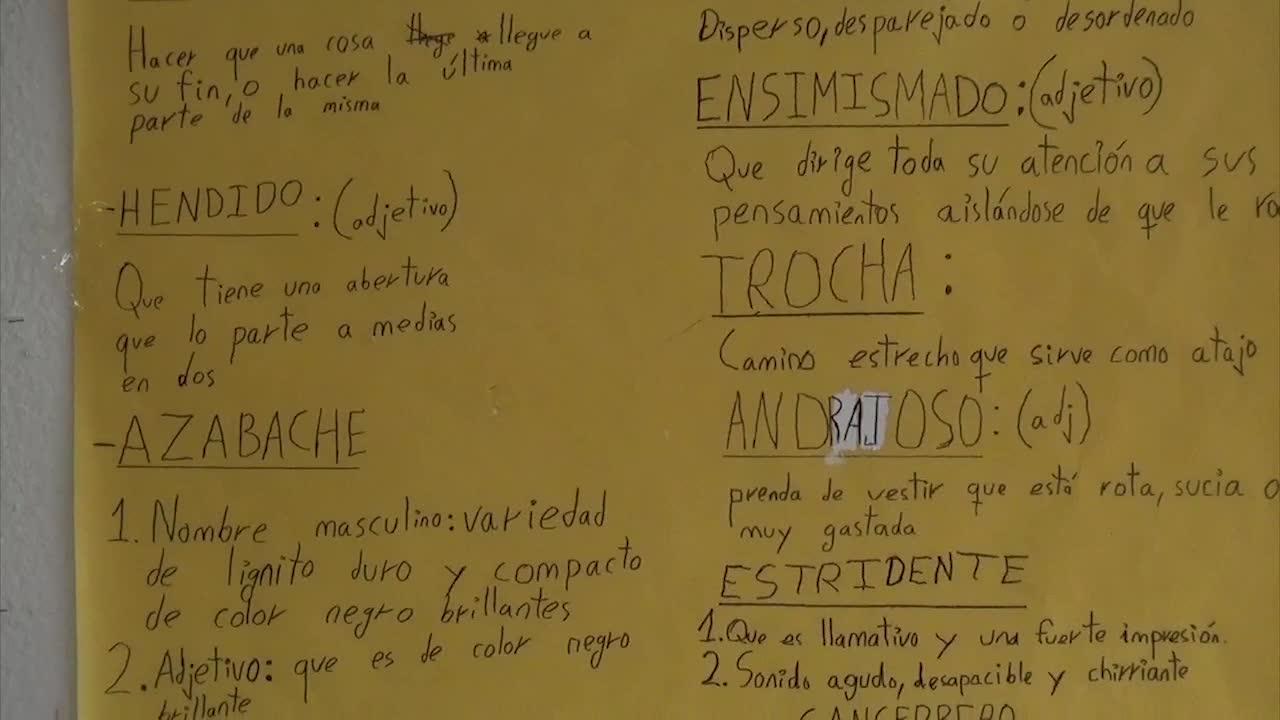 Hacer que una cosa llegue a
su fin, o hacer la última
parte de la misma
-HENDIDO: (adjetivo)
Que tiene una abertura
que lo parte a medias
en dos
-AZABACHE
1. Nombre masculino: variedad
de lignito duro y compacto
de color negro brillantes
2. Adjetivo: que es de color negro
brillante
Disperso, desparejado o desordenado
ENSIMISMADO: (adjetivo)
Que dirige toda su atención a sus
pensamientos aislándose de que le
TROCHA:
Camino estrecho que sirve como atajo
ANDRAJOSO: (adj)
prenda de vestir que está rota, sucia o
muy gastada
ESTRIDENTE
1. Que es llamativo y una fuerte impresión.
2. Sonido agudo, desapacible y chirriante